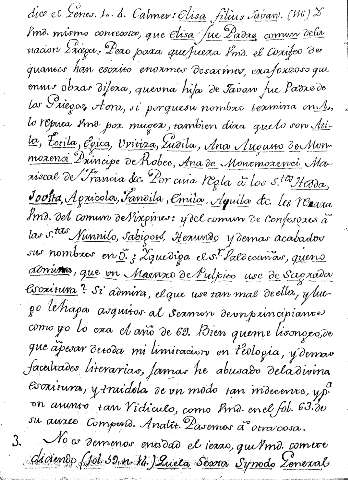 dice el Genes. 10. 4. Calmet: Elisa filius Javan. (Mi) I
Vmd. mismo concieso, que Elisa fue Padre comun de la
nacion Griega. Pero para que fuera Vmd. el Corifeo de
quantos han escrito enormes desatinos, era forzoso que
en sus obras dijera, que una hija de Javan fue Padre de
los Griegos. Ahora, si porque su nombre termina en A,
lo reputa Vmd. por muger, tambien dira que lo son Ati-
la, Totila, Egica, Uvitiza, Gudila, Ana Augusto de Mon-
morena Principe de Robec, Ana de Monmorenci Ma-
riscal de Francia &c. Por esta regla á los Stos.
Agricola, Tandila, Emila, Aguila &c. les rezara
Vmd. del comun de Virgines: y del comun de Confesores á
las Stas. Nunnilo, Sabigoto, y demas acabados
sus nombres en O. ¿ Que diga el Sr. Valdecuñas, que no
admira, que un Maestro de Pulpito use de Sagrada
Escritura? Si admira, el que use tan mal de ella, y lue-
go le haga asquitos al Sermon de un principiante
como yo lo era el año de 69. Bien que me lisongeo, de
que apesar de toda mi limitacion en Teologia, y demas
facultades literarias, jamas he abusado de la divina
Escritura, y traidola de un modo tan indecente, y pa.
un asunto tan ridiculo, como Vmd. en el fol. 63. de
su aureo Compend. Analit. Pasemos á otra cosa.
3. No es de menos entidad el ierro, que Vmd. comete
diciendo (fol. 59. n. 14.) Que la Sexta Synodo General